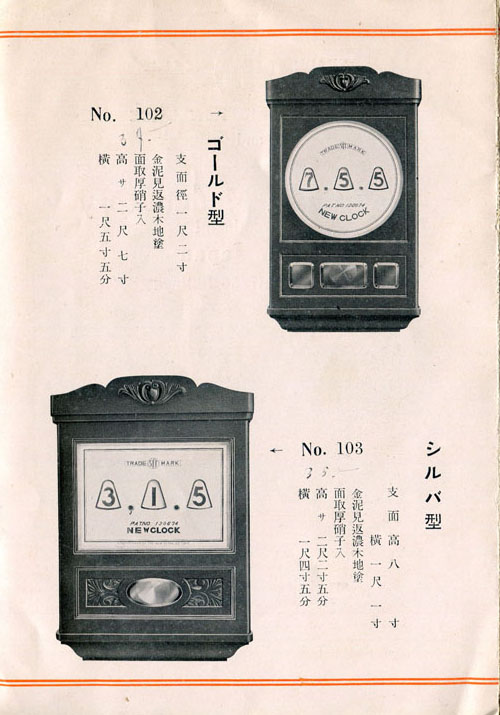 No. 102
39.—
ゴールド型
支面徑一尺二寸
金泥見返濃木地塗
面取厚硝子入
高サ二尺七寸
橫一尺五寸五分
TRADE MARK
7.5.5
PAT NO 120674
NEW CLOCK
シルバ型
No. 103
33.—
支面高八寸
橫一尺一寸
金泥見返濃木地塗
面取厚硝子入
高サ二尺二寸五分
橫一尺四寸五分
TRADE MARK
3.1.5
PAT NO 120674
NEW CLOCK